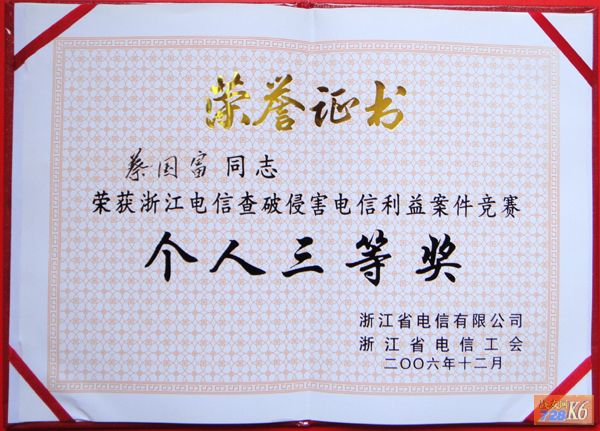 荣誉证书
蔡国富同志
荣获浙江电信查破侵害电信利益案件竞赛
个人三等奖
浙江省电信有限公司
浙江省电信工会
二〇〇六年十二月
728K6